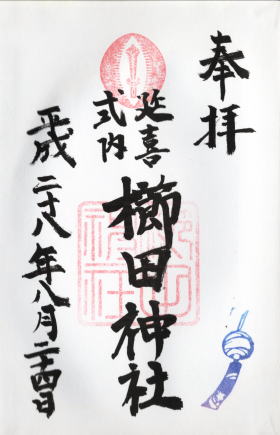 奉拝
延喜
式内
櫛田神社
平成二十八年八月二十四日